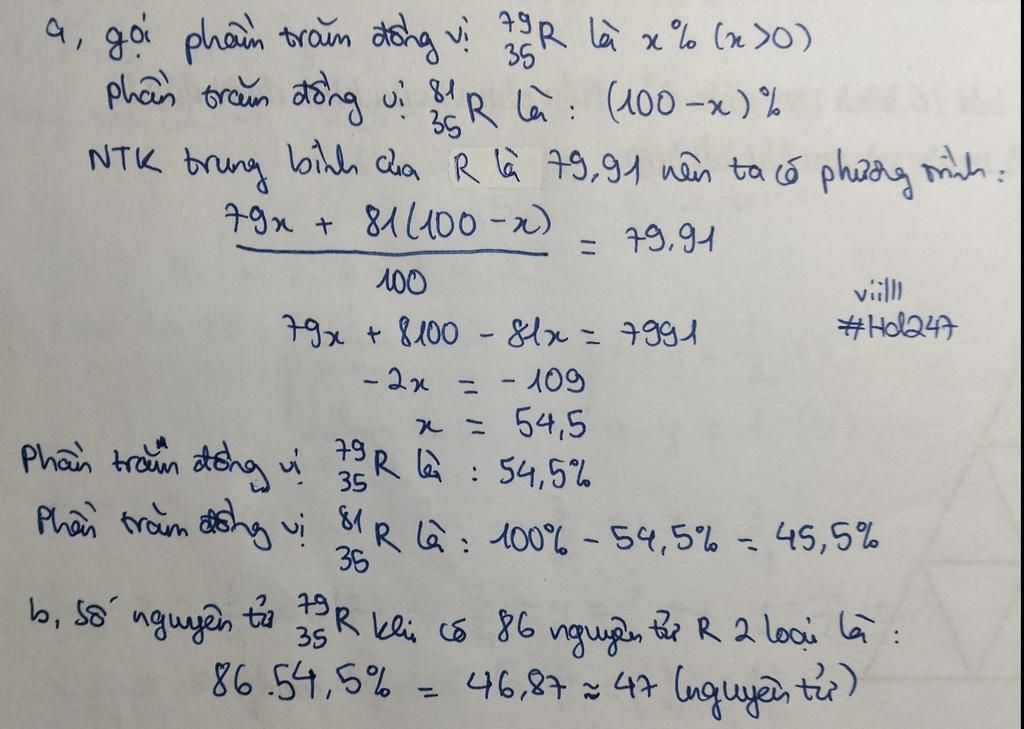 a, gọi phần trăm đồng vị ⁷⁹₃₅R là x% (x>0)
phần trăm đồng vị ⁸¹₃₅R là : (100 - x) %
NTK trung bình của R là 79,91 nên ta có phương trình :
79x + 81(100 - x)
100
= 79,91
viilll
#Hd247
79x + 8100 - 81x = 7991
-2x = -109
x = 54,5
Phần trăm đồng vị ⁷⁹₃₅R là : 54,5%
Phần trăm đồng vị ⁸¹₃₅R là : 100% - 54,5% = 45,5%
b, Số nguyên tử ⁷⁹₃₅R khi có 86 nguyên tử R 2 loại là :
86.54,5% = 46,87 ≈ 47 (nguyên tử)